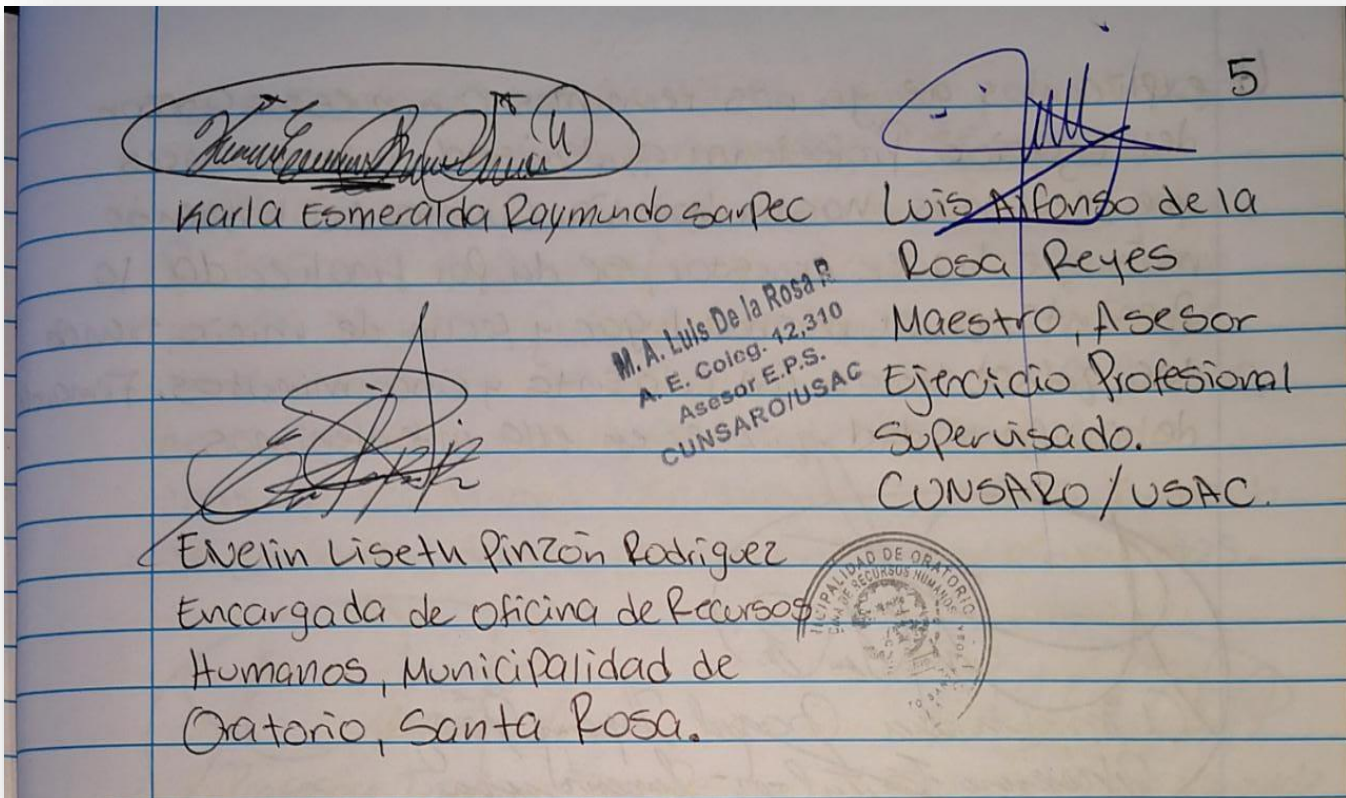 5
Karla Esmeralda Raymundo Sarpec
Luis Alfonso de la
Rosa Reyes
Maestro, Asesor
Ejercicio Profesional
Supervisado.
CUNSARO/USAC.
M.A. Luis De la Rosa R
A. E. Coleg. 12,310
Asesor E.P.S.
CUNSARO/USAC
Evelin Liseth Pinzón Rodriguez
Encargada de Oficina de Recursos
Humanos, Municipalidad de
Oratorio, Santa Rosa.
DE ORATORIO
RECURSOS HUMANOS